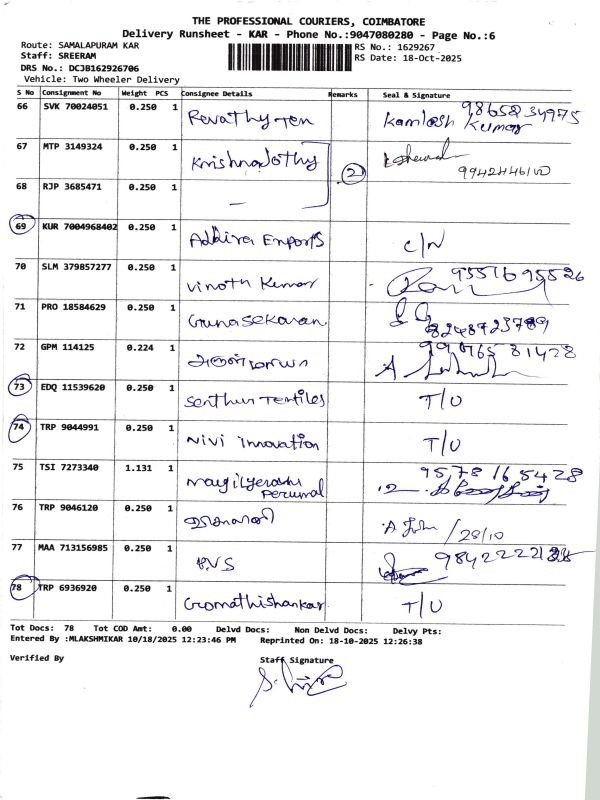 THE PROFESSIONAL COURIERS, COIMBATORE
Delivery Runsheet - KAR - Phone No.:9047080280 - Page No.:6
Route: SAMALAPURAM KAR RS No.: 1629267
Staff: SREERAM RS Date: 18-Oct-2025
DRS No.: DCJB162926706
Vehicle: Two Wheeler Delivery
S No Consignment No Weight PCS Consignee Details Remarks Seal & Signature
66 SVK 70024051 0.250 1 Revathy Ten Kamlesh Kumar 9865834975
67 MTP 3149324 0.250 1 Krishna Jothy 2
68 RJP 3685471 0.250 1 —
69 KUR 7004968402 0.250 1 Adhira Exports C/N
70 SLM 379857277 0.250 1 Vinoth Kumar 9551695526
71 PRO 18584629 0.250 1 Gunasekaran 8248723789
72 GPM 114125 0.224 1
73 EDQ 11539620 0.250 1 Senthur Textiles T/U
74 TRP 9044991 0.250 1 Nivi Innovation T/U
75 TSI 7273340 1.131 1 Perumal 9578165428
76 TRP 9046120 0.250 1 /28/10
77 MAA 713156985 0.250 1 P.V.S
78 TRP 6936920 0.250 1 Gomathishankar T/U
Tot Docs: 78 Tot COD Amt: 0.00 Delvd Docs: Non Delvd Docs: Delvy Pts:
Entered By :MLAKSHMIKAR 10/18/2025 12:23:46 PM Reprinted On: 18-10-2025 12:26:38
Verified By Staff Signature